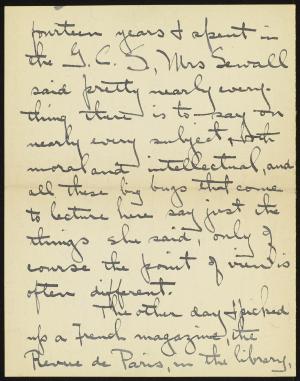 fourteen years I spent in
the G. C. S, Mrs Sewall
said pretty nearly every-
thing there is to say on
nearly every subject, both
moral and intellectual, and
all these big bugs that come
to lecture here say just the
things she said, only of
course the point of view is
often different.
The other day I picked
up a French magazine, the
Revue de Paris, in the library,